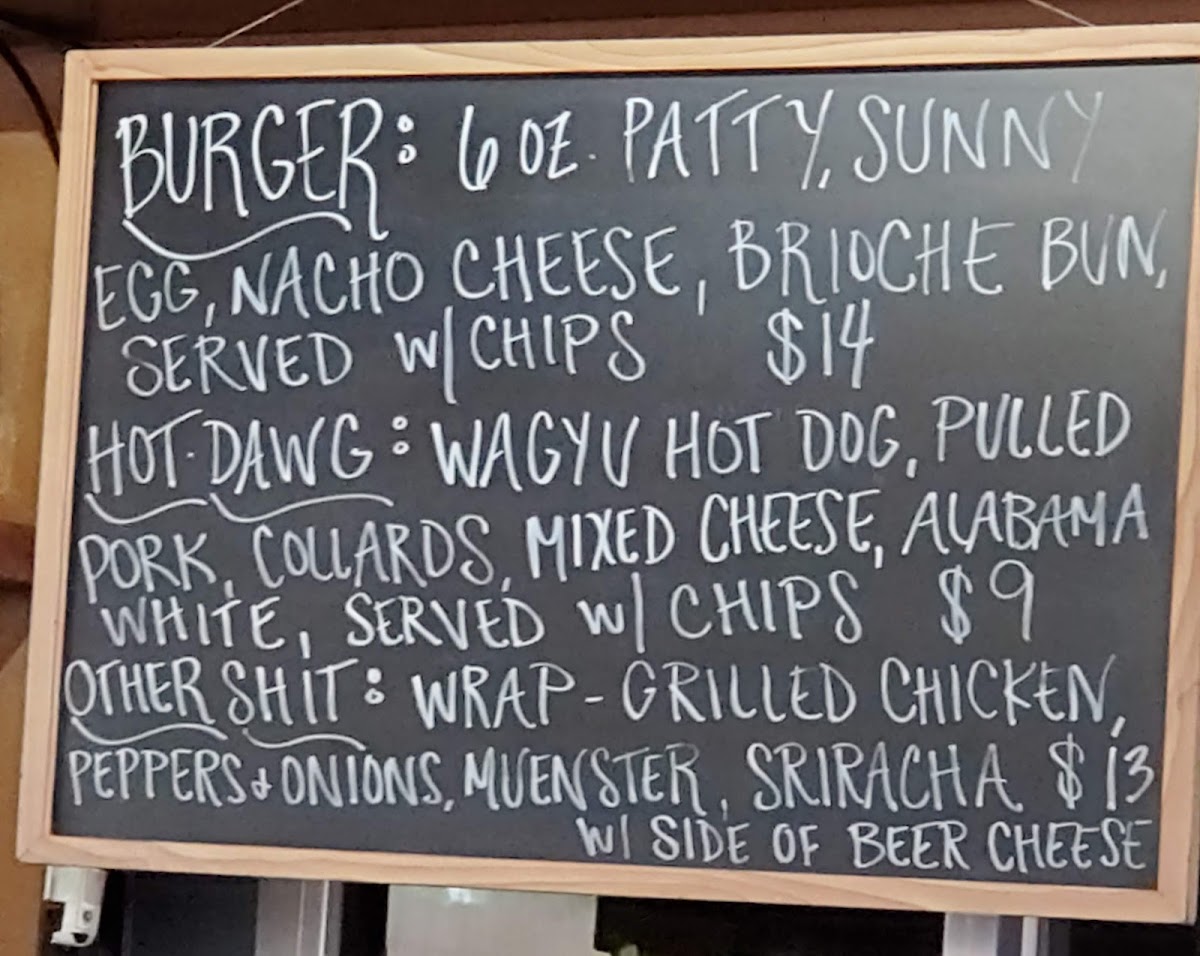 BURGER: 6 OZ. PATTY, SUNNY
EGG, NACHO CHEESE, BRIOCHE BUN,
SERVED W/ CHIPS $14
HOT-DAWG: WAGYU HOT DOG, PULLED
PORK, COLLARDS, MIXED CHEESE, ALABAMA
WHITE, SERVED W/ CHIPS $9
OTHER SHIT: WRAP - GRILLED CHICKEN,
PEPPERS & ONIONS, MUENSTER, SRIRACHA $13
W/ SIDE OF BEER CHEESE